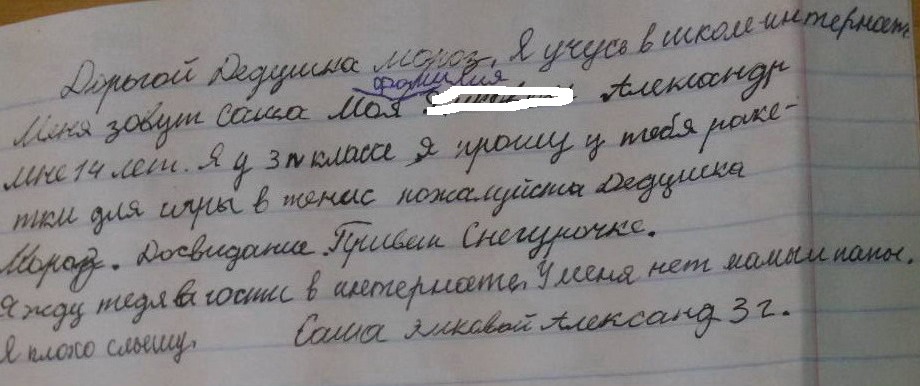 Дорогой Дедушка мороз. Я учусь в школе-интернате
фамилия
Меня зовут Саша Моя Александр
мне 14 лет. Я у 3 п классе я прошу у тебя раке-
тки для игры в тенис пожалуйста Дедушка
Мороз. Досвидание. Привет Снегурочке.
Я жду тедя в гости в интернате. У меня нет мамы и папы.
Я плохо слышу. Саша Александ 3 г.